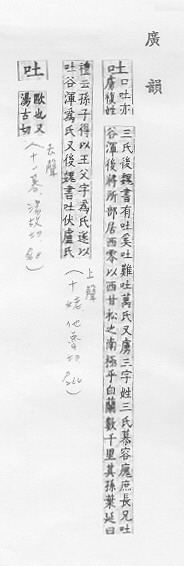 廣韻
吐
口吐亦
虜複姓
三氏後魏書有吐奚吐難吐萬氏又虜三字姓三氏慕容廆庶長兄吐
谷渾後將所部居西零以西甘松之南極乎白蘭數千里其孫葉延曰
禮云孫子得以王父字爲氏遂以
吐谷渾爲氏又後魏書吐伏盧氏
上聲
(十姥 他魯切 P266)
吐
歐也又
湯古切
去聲
(十一暮 湯故切